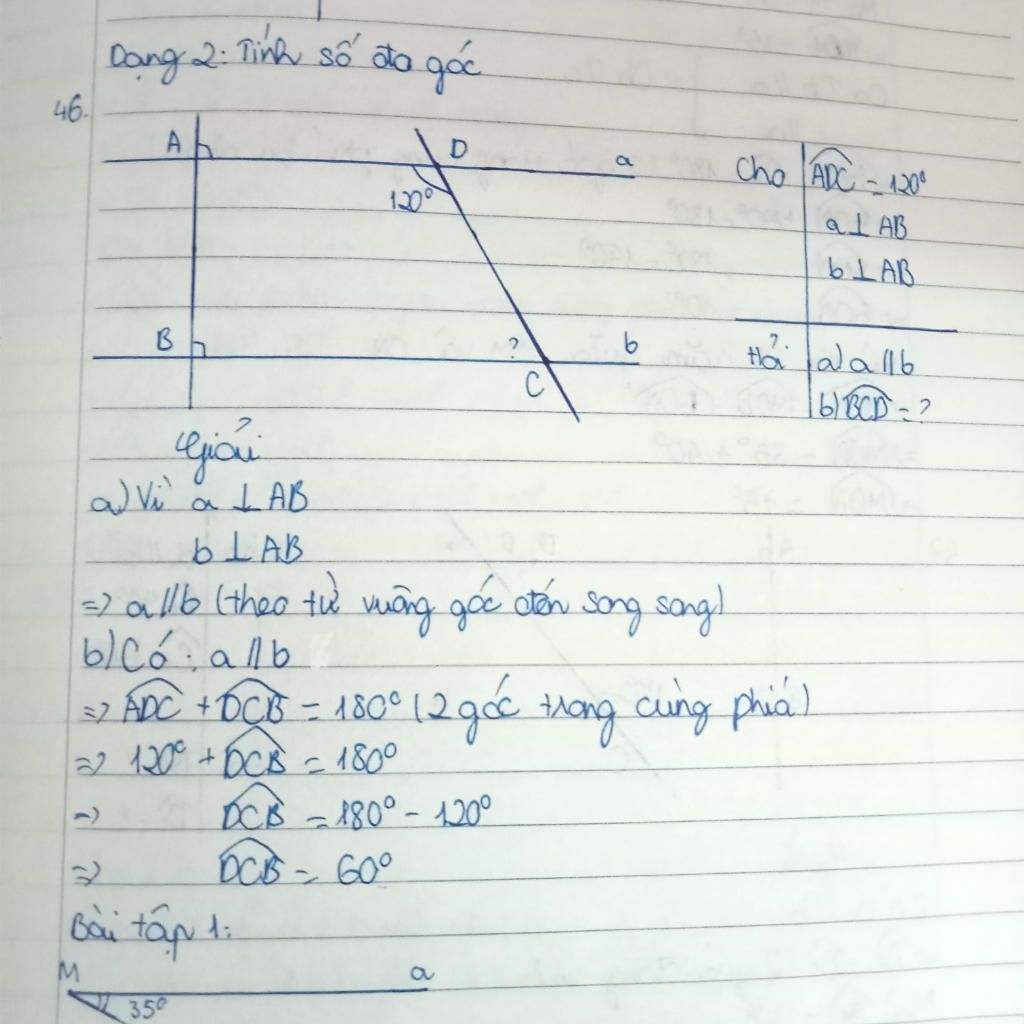 Dạng 2: Tính số đo góc
46.
A
D
a
120°
B
?
b
C
Cho
ADC = 120°
a ⊥ AB
b ⊥ AB
Hỏi
a) a // b
b) BCD = ?
Giải
a) Vì a ⊥ AB
b ⊥ AB
=> a // b (theo từ vuông góc đến song song)
b) Có : a // b
=> ADC + DCB = 180° (2 góc trong cùng phía)
=> 120° + DCB = 180°
=> DCB = 180° - 120°
=> DCB = 60°
Bài tập 1:
M
a
35°